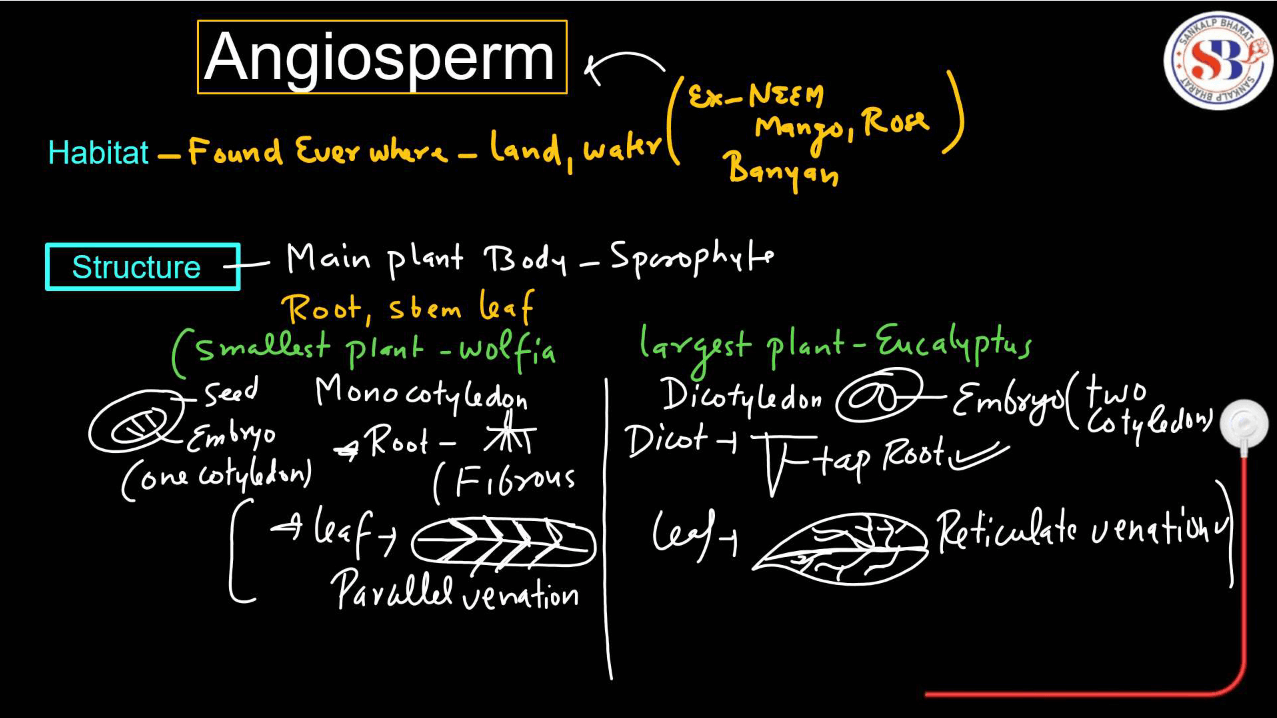 Angiosperm
SANKALP BHARAT
SB
SANKALP BHARAT
Habitat – Found Ever where – land, water
(Ex – NEEM
Mango, Rose
Banyan)
Structure — Main plant Body – Sporophyte
Root, stem leaf
(Smallest plant – Wolfia
largest plant – Eucalyptus
Seed
Embryo
(one cotyledon)
Monocotyledon
→ Root –
(Fibrous
→ leaf →
Parallel venation
Dicotyledon
Embryo (two cotyledon)
Dicot → tap Root ✓
leaf → Reticulate venation